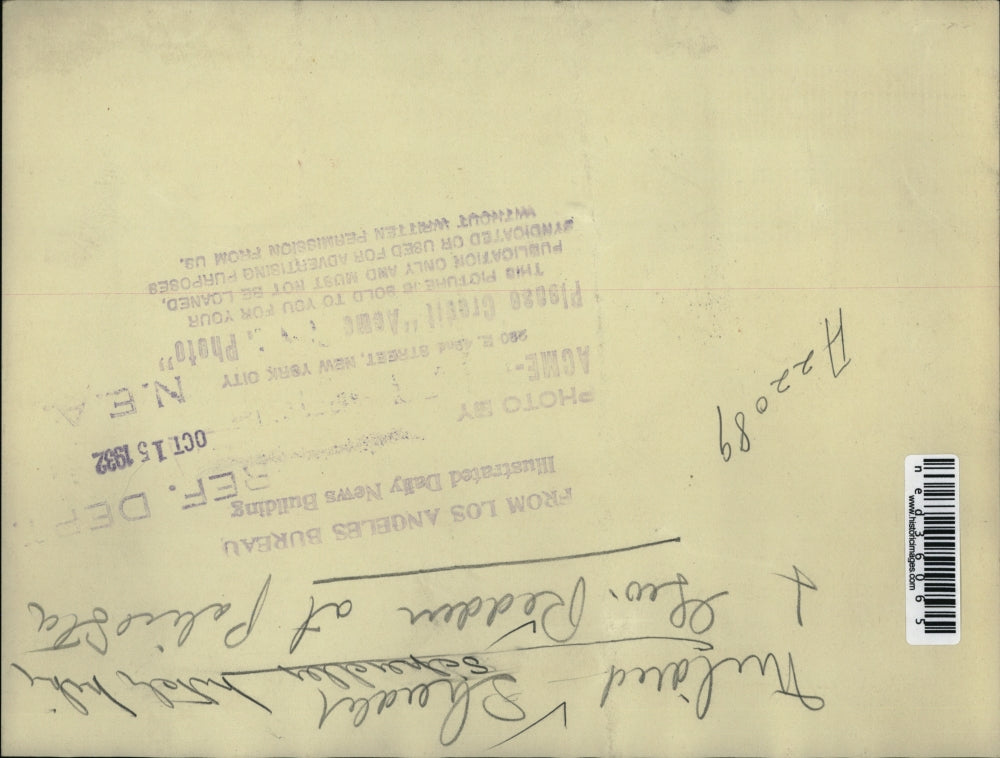 Mildred Sheades
Scheades
+ Geo. Redden at Police Sta
FROM LOS ANGELES BUREAU
Illustrated Daily News Building
REF. DEPT
OCT 15 1932
N. E. A
PHOTO BY
ACME-
220 E. 42nd STREET, NEW YORK CITY
Please Credit "Acme Photo"
THIS PICTURE IS SOLD TO YOU FOR YOUR
PUBLICATION ONLY AND MUST NOT BE LOANED,
SYNDICATED OR USED FOR ADVERTISING PURPOSES
WITHOUT WRITTEN PERMISSION FROM US.
A22089
www.historicimages.com
ned36065